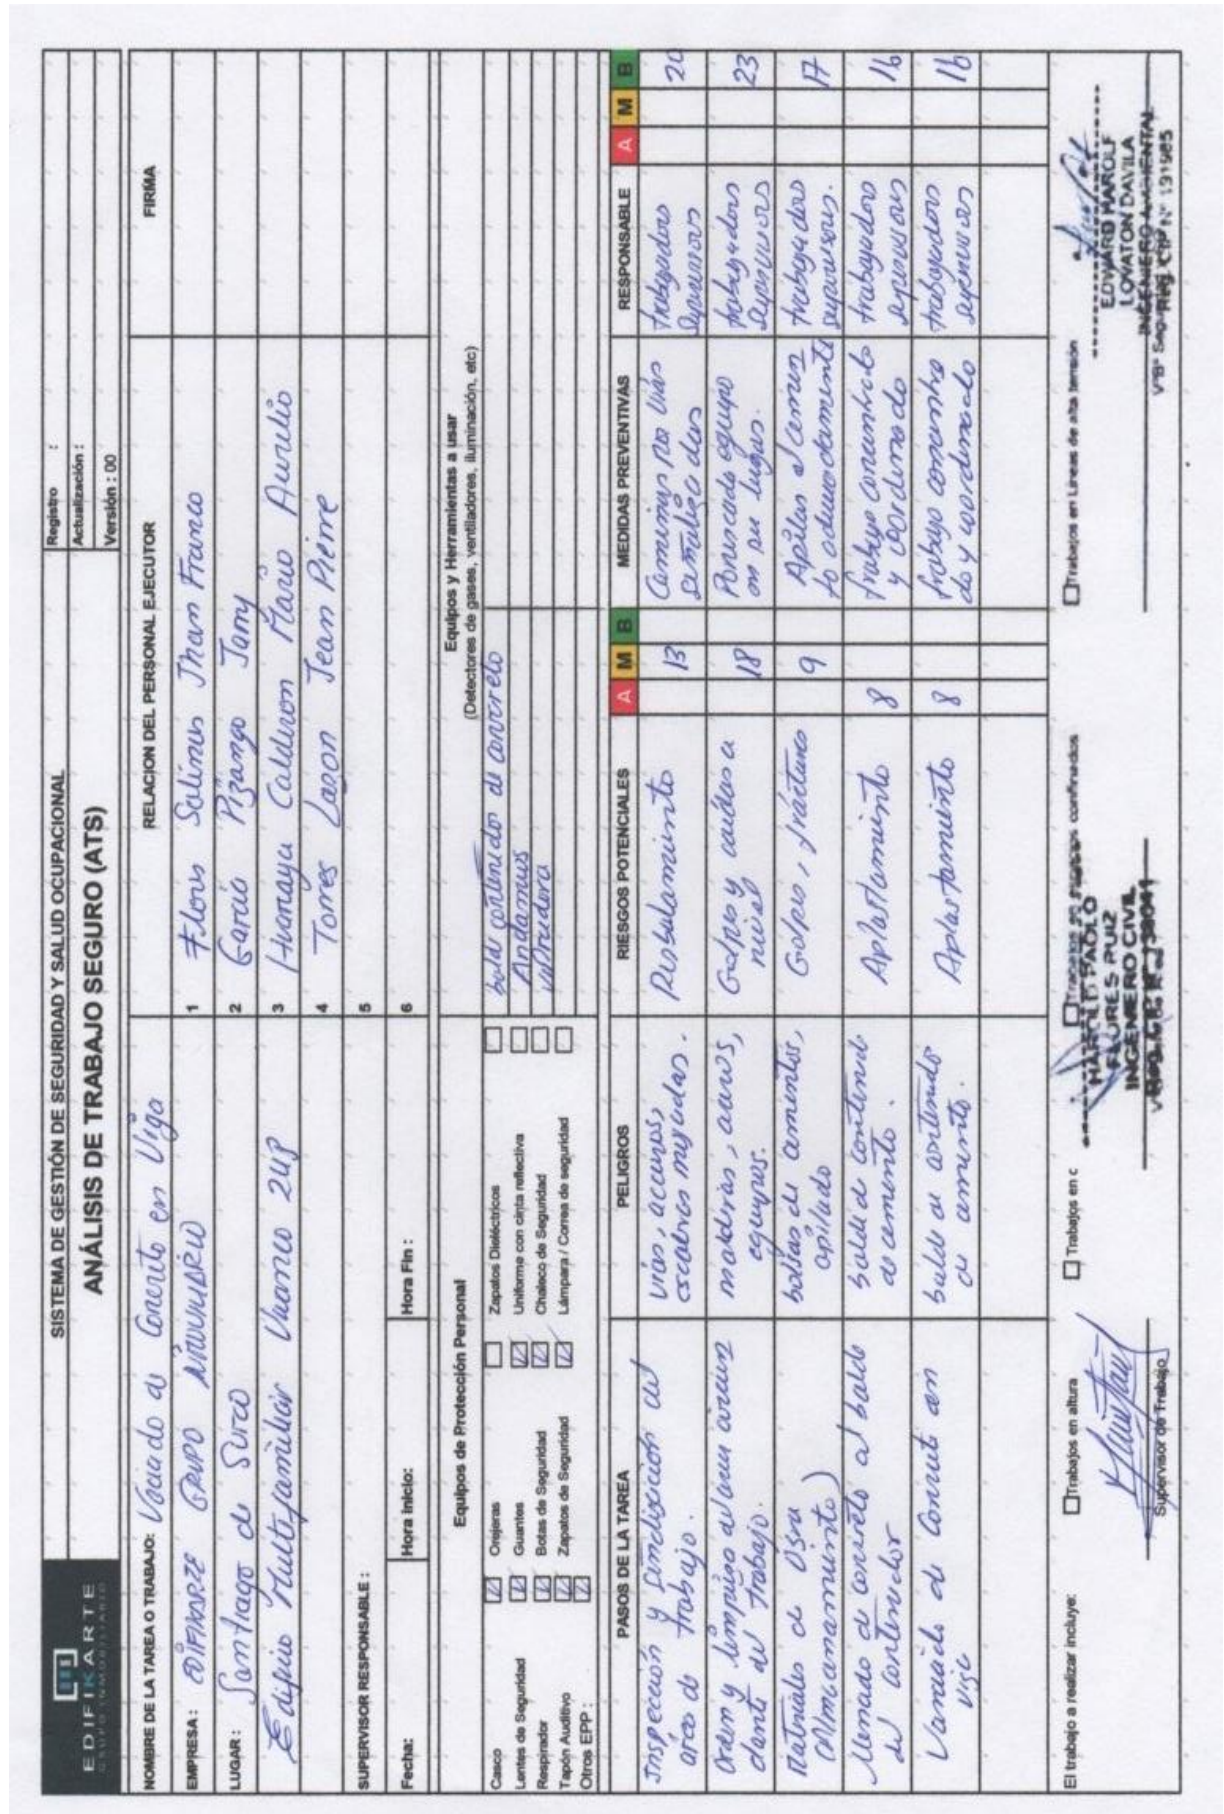 EDIFIKARTE
GRUPO INMOBILIARIO
SISTEMA DE GESTIÓN DE SEGURIDAD Y SALUD OCUPACIONAL
ANÁLISIS DE TRABAJO SEGURO (ATS)
Registro :
Actualización :
Versión : 00
NOMBRE DE LA TAREA O TRABAJO: Vaciado de Concreto en Viga
EMPRESA: EDIFIKARTE GRUPO INMOVILIARIO
LUGAR: Santiago de Surco
Edificio Multifamiliar Vivanco 248
SUPERVISOR RESPONSABLE :
Fecha: Hora Inicio: Hora Fin :
RELACION DEL PERSONAL EJECUTOR FIRMA
1 Flores Salinas Jhan Franco
2 Garcia Pizango Jamy
3 Huamaya Calderon Mario Aurelio
4 Torres Lason Jean Pierre
5
6
Equipos de Protección Personal
Casco Orejeras Zapatos Dieléctricos
Lentes de Seguridad Guantes Uniforme con cinta reflectiva
Respirador Botas de Seguridad Chaleco de Seguridad
Tapón Auditivo Zapatos de Seguridad Lámpara / Correa de seguridad
Otros EPP :
Equipos y Herramientas a usar
(Detectores de gases, ventiladores, iluminación, etc)
balde contenido de concreto
Andamios
vibradora
PASOS DE LA TAREA PELIGROS RIESGOS POTENCIALES A M B MEDIDAS PREVENTIVAS RESPONSABLE A M B
Inspección y condición del
area de trabajo.
vias, accesos,
escaleras mojadas.
Resbalamiento
13
Caminar por vias
señalizadas
trabajadores
supervisores
20
Orden y limpieza del area circun
dante del trabajo.
maderas, aceros,
equipos.
Golpes y caídas a
nivel
18
equipo
en su lugar.
trabajadores
supervisores
23
Materiales de Obra
(Almacenamiento)
bolsas de cementos,
apilado
Golpes, fracturas
9
Apilar el cemen
to adecuadamente
trabajadores
supervisores.
17
llenado de concreto al balde
del contenedor
balde de contenido
de cemento.
Aplastamiento
8
trabajo concentrado
y coordinado
trabajadores
supervisores
16
Vaciado de Concreto en
viga
balde de contenido
de cemento.
Aplastamiento
8
trabajo concentra
do y coordinado
trabajadores
supervisores
16
El trabajo a realizar incluye: Trabajos en altura Trabajos en c Trabajos en Líneas de alta tensión
Supervisor de Trabajo
HAROLD PAOLO
FLORES RUIZ
INGENIERO CIVIL
EDWARD HAROLF
LOVATON DAVILA
INGENIERO AMBIENTAL
Reg. CIP N° 191985